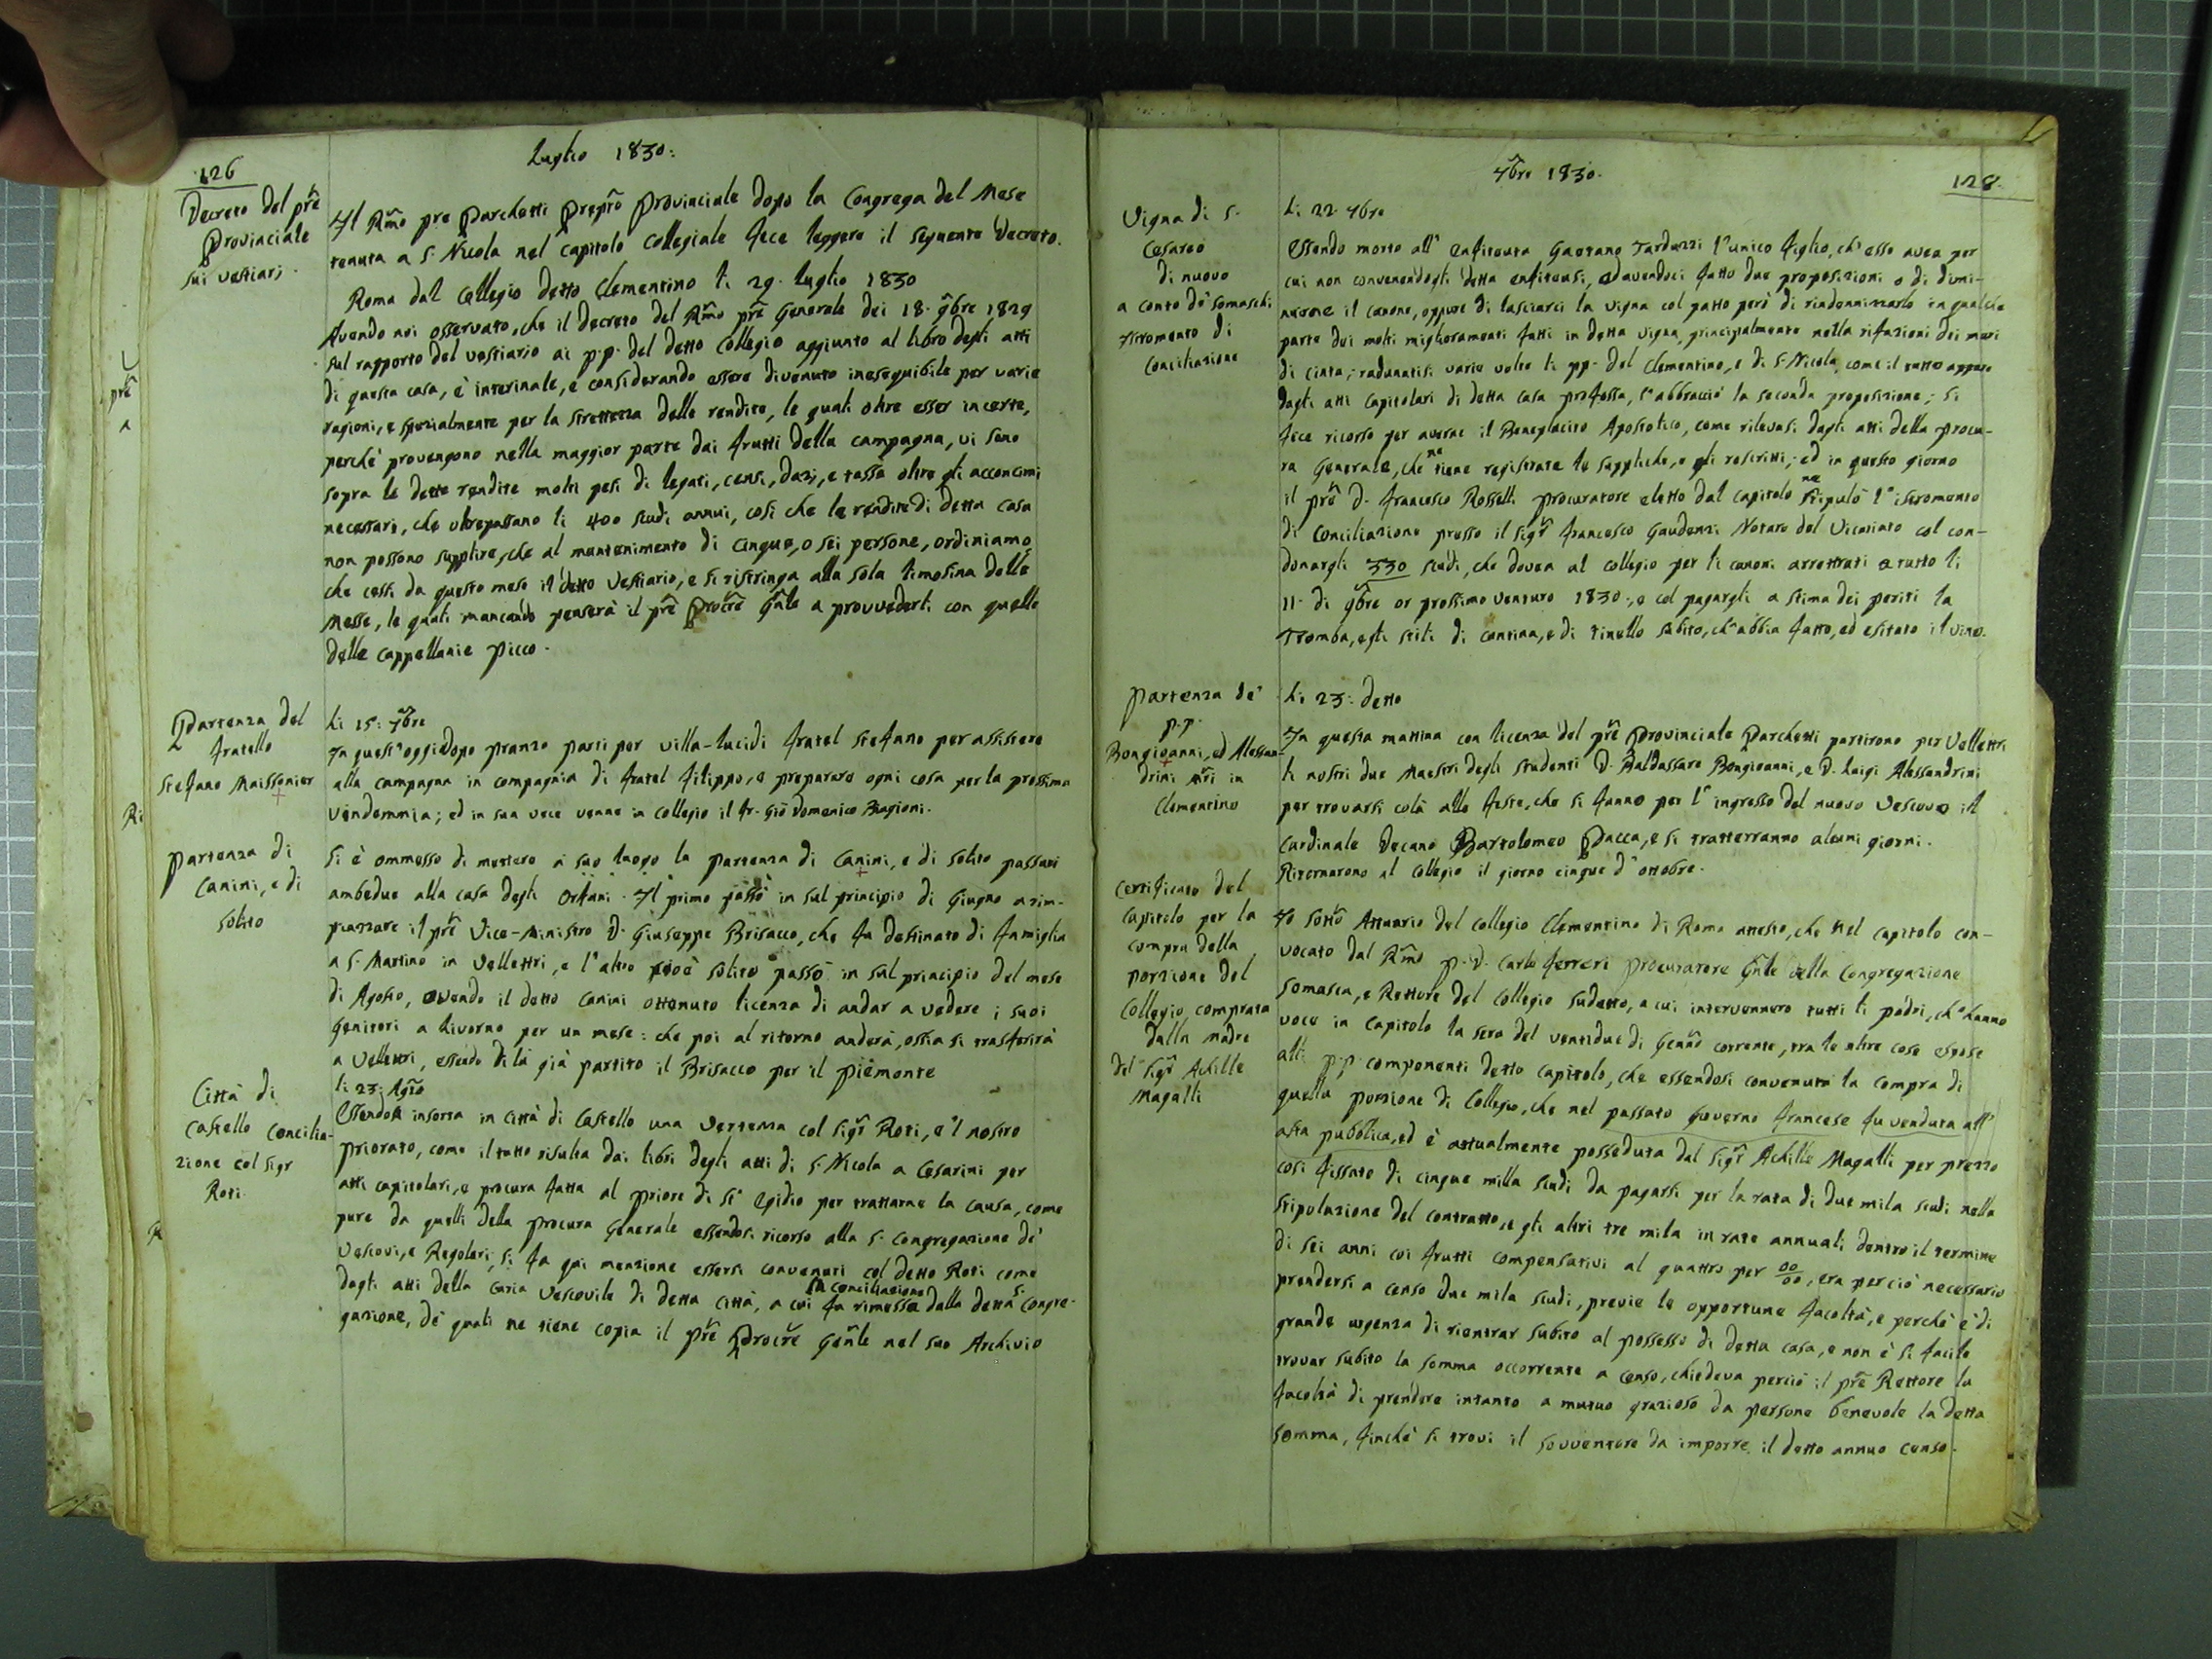 126
Luglio 1830:
Decreto del prẽ
Provinciale
sui vestiarj.
Il Rm̃o pre Parchetti Prep̃ro Provinciale dopo la Congrega del Mese
tenuta a S. Nicola nel capitolo Collegiale fece leggere il seguente Decreto.
Roma dal Collegio detto Clementino li 29. Luglio 1830
Avendo noi osservato, che il decreto del Rm̃o prẽ Generale dei 18. 9bre 1829
sul rapporto del vestiario ai p.p. del detto Collegio aggiunto al libro degli atti
di questa casa, è interinale, e considerando essere divenuto ineseguibile per varie
ragioni, e spezialmente per la strettezza delle rendite, le quali oltre esser incerte,
perchè provengono nella maggior parte dai frutti della campagna, vi sono
sopra le dette rendite molti pesi di legati, censi, dazj, e tasse oltre gli acconcimi
necessarj, che oltrepassano li 400 scudi annui, così che le rendite di detta casa
non possono supplire, che al mantenimento di cinque, o sei persone, ordiniamo,
che cessi da questo mese il detto vestiario, e si ristringa alla sola limosina delle
Messe, le quali mancando penserà il prẽ Procrẽ Gñle a provvederli con quelle
delle cappellanie Picco.
Partenza del
fratello
Stefano Maissonier
Li 15: 7bre
In quest'oggi dopo pranzo partì per villa-lucidi fratel Stefano per assistere
alla campagna in compagnia di fratel Filippo, e preparare ogni cosa per la prossima
vendemmia; ed in sua vece venne in collegio il fr. Giõ Domenico Biagioni.
Partenza di
Canini, e di
Solito
Si è ommesso di mettere a suo luogo la partenza di Canini, e di Solito passati
ambedue alla casa degli Orfani. Il primo passò in sul principio di Giugno a rim-
piazzare il prẽ Vice-Ministro D. Giuseppe Brisacco, che fu destinato di famiglia
a S. Martino in Vellettri, e l'altro cioè Solito passò in sul principio del mese
di Agosto, avendo il detto Canini ottenuto licenza di andar a vedere i suoi
Genitori a Livorno per un mese: che poi al ritorno anderà, ossia si trasferirà
a Vellettri, essendo di là già partito il Brisacco per il Piemonte
Città di
Castello Concilia-
zione col Sigr
Roti.
li 23: Agto
Essendo insorta in Città di Castello una vertenza col Sigr̃ Roti, e 'l nostro
Priorato, come il tutto risulta dai libri degli atti di S. Nicola a Cesarini per
atti capitolari, e procura fatta al Priore di St' Egidio per trattarne la causa, come
pure da quelli della Procura Generale essendosi ricorso alla S. Congregazione de'
Vescovi, e Regolari, si fa qui menzione essersi convenuti col detto Roti come
dagli atti della Curia Vescovile di detta città, a cui fu rimessa la conciliazione dalla detta S. Congre-
gazione, de' quali ne tiene copia il prẽ Procrẽ Gñle nel suo Archivio
7bre 1830.
128.
Vigna di S.
Cesareo
di nuovo
a conto de' Somaschi
Istromento di
Conciliazione
Li 22. 7bre
Essendo morto all' Enfiteuta Gaetano Tarduzzi l'unico figlio, ch'esso avea per
cui non convenendogli detta enfiteusi, ed avendoci fatto due proposizioni o di dimi-
nuirne il canone, oppure di lasciarci la vigna col patto però di rindennizzarlo in qualche
parte dei molti miglioramenti fatti in detta vigna, principalmente nella rifazioni dei muri
di cinta, radunatisi varie volte li pp. del Clementino, e di S. Nicola, come il tutto appare
dagli atti Capitolari di detta casa professa, s'abbracciò la seconda proposizione; si
fece ricorso per averne il Beneplacito Apostolico, come rilevasi dagli atti della Procu-
ra Generale, che ne tiene registrate le suppliche, e gli rescritti; ed in questo giorno
il prẽ D. Francesco Rosselli Procuratore eletto dal capitolo ne stipulò l'istromento
di Conciliazione presso il Sigr̃ Francesco Gaudenzi Notaro del Vicariato col con-
donargli 330 scudi, che dovea al collegio per li canoni arrettrati a tutto li
11. di 9bre or prossimo venturo 1830., e col pagargli a stima dei periti la
Tromba, egli stili di cantina, e di tinello subito, ch'abbia fatto, ed esitato il vino.
Partenza de'
p.p.
Bongioanni, ed Alessan-
drini mr̃i in
Clementino
Li 23: detto
In questa mattina con licenza del prẽ Provinciale Parchetti partirono per Vellettri
li nostri due Maestri degli studenti D. Baldassare Bongioanni, e D. Luigi Alessandrini
per trovarsi colà alle feste, che si fanno per l'ingresso del nuovo Vescovo il
Cardinale Decano Bartolomeo Pacca, e si tratterranno alcuni giorni.
Ritornarono al Collegio il giorno cinque d'ottobre.
Certificato del
Capitolo per la
compra della
porzione del
Collegio comprata
dalla madre
del Sigr̃ Achille
Magalli
Io sottõ Attuario del Collegio Clementino di Roma attesto, che nel capitolo con-
vocato dal Rm̃o P. D. Carlo Ferreri Procuratore Gñle della Congregazione
Somasca, e Rettore del Collegio sudetto, a cui intervennero tutti li padri, ch'hanno
voce in Capitolo la sera del ventidue di Genñ̃o corrente, tra le altre cose espose
alli p.p. componenti detto capitolo, che essendosi convenuta la compra di
quella porzione di Collegio, che nel passato Governo francese fu venduta all'
asta pubblica, ed è attualmente posseduta dal Sigr̃ Achille Magalli per prezzo
così fissato di cinque milla scudi da pagarsi per la rata di due mila scudi nella
stipulazione del contratto, e gli altri tre mila in rate annuali dentro il termine
di sei anni coi frutti compensativi al quattro per 00/00, era perciò necessario
prendersi a censo due mila scudi, previe le opportune facoltà, e perchè è di
grande urgenza di rientrar subito al possesso di detta casa, e non è sì facile
trovar subito la somma occorrente a censo, chiedeva perciò il prẽ Rettore la
facoltà di prendere intanto a mutuo grazioso da persone benevole la detta
somma, finchè si trovi il sovventore da imporre il detto annuo censo.